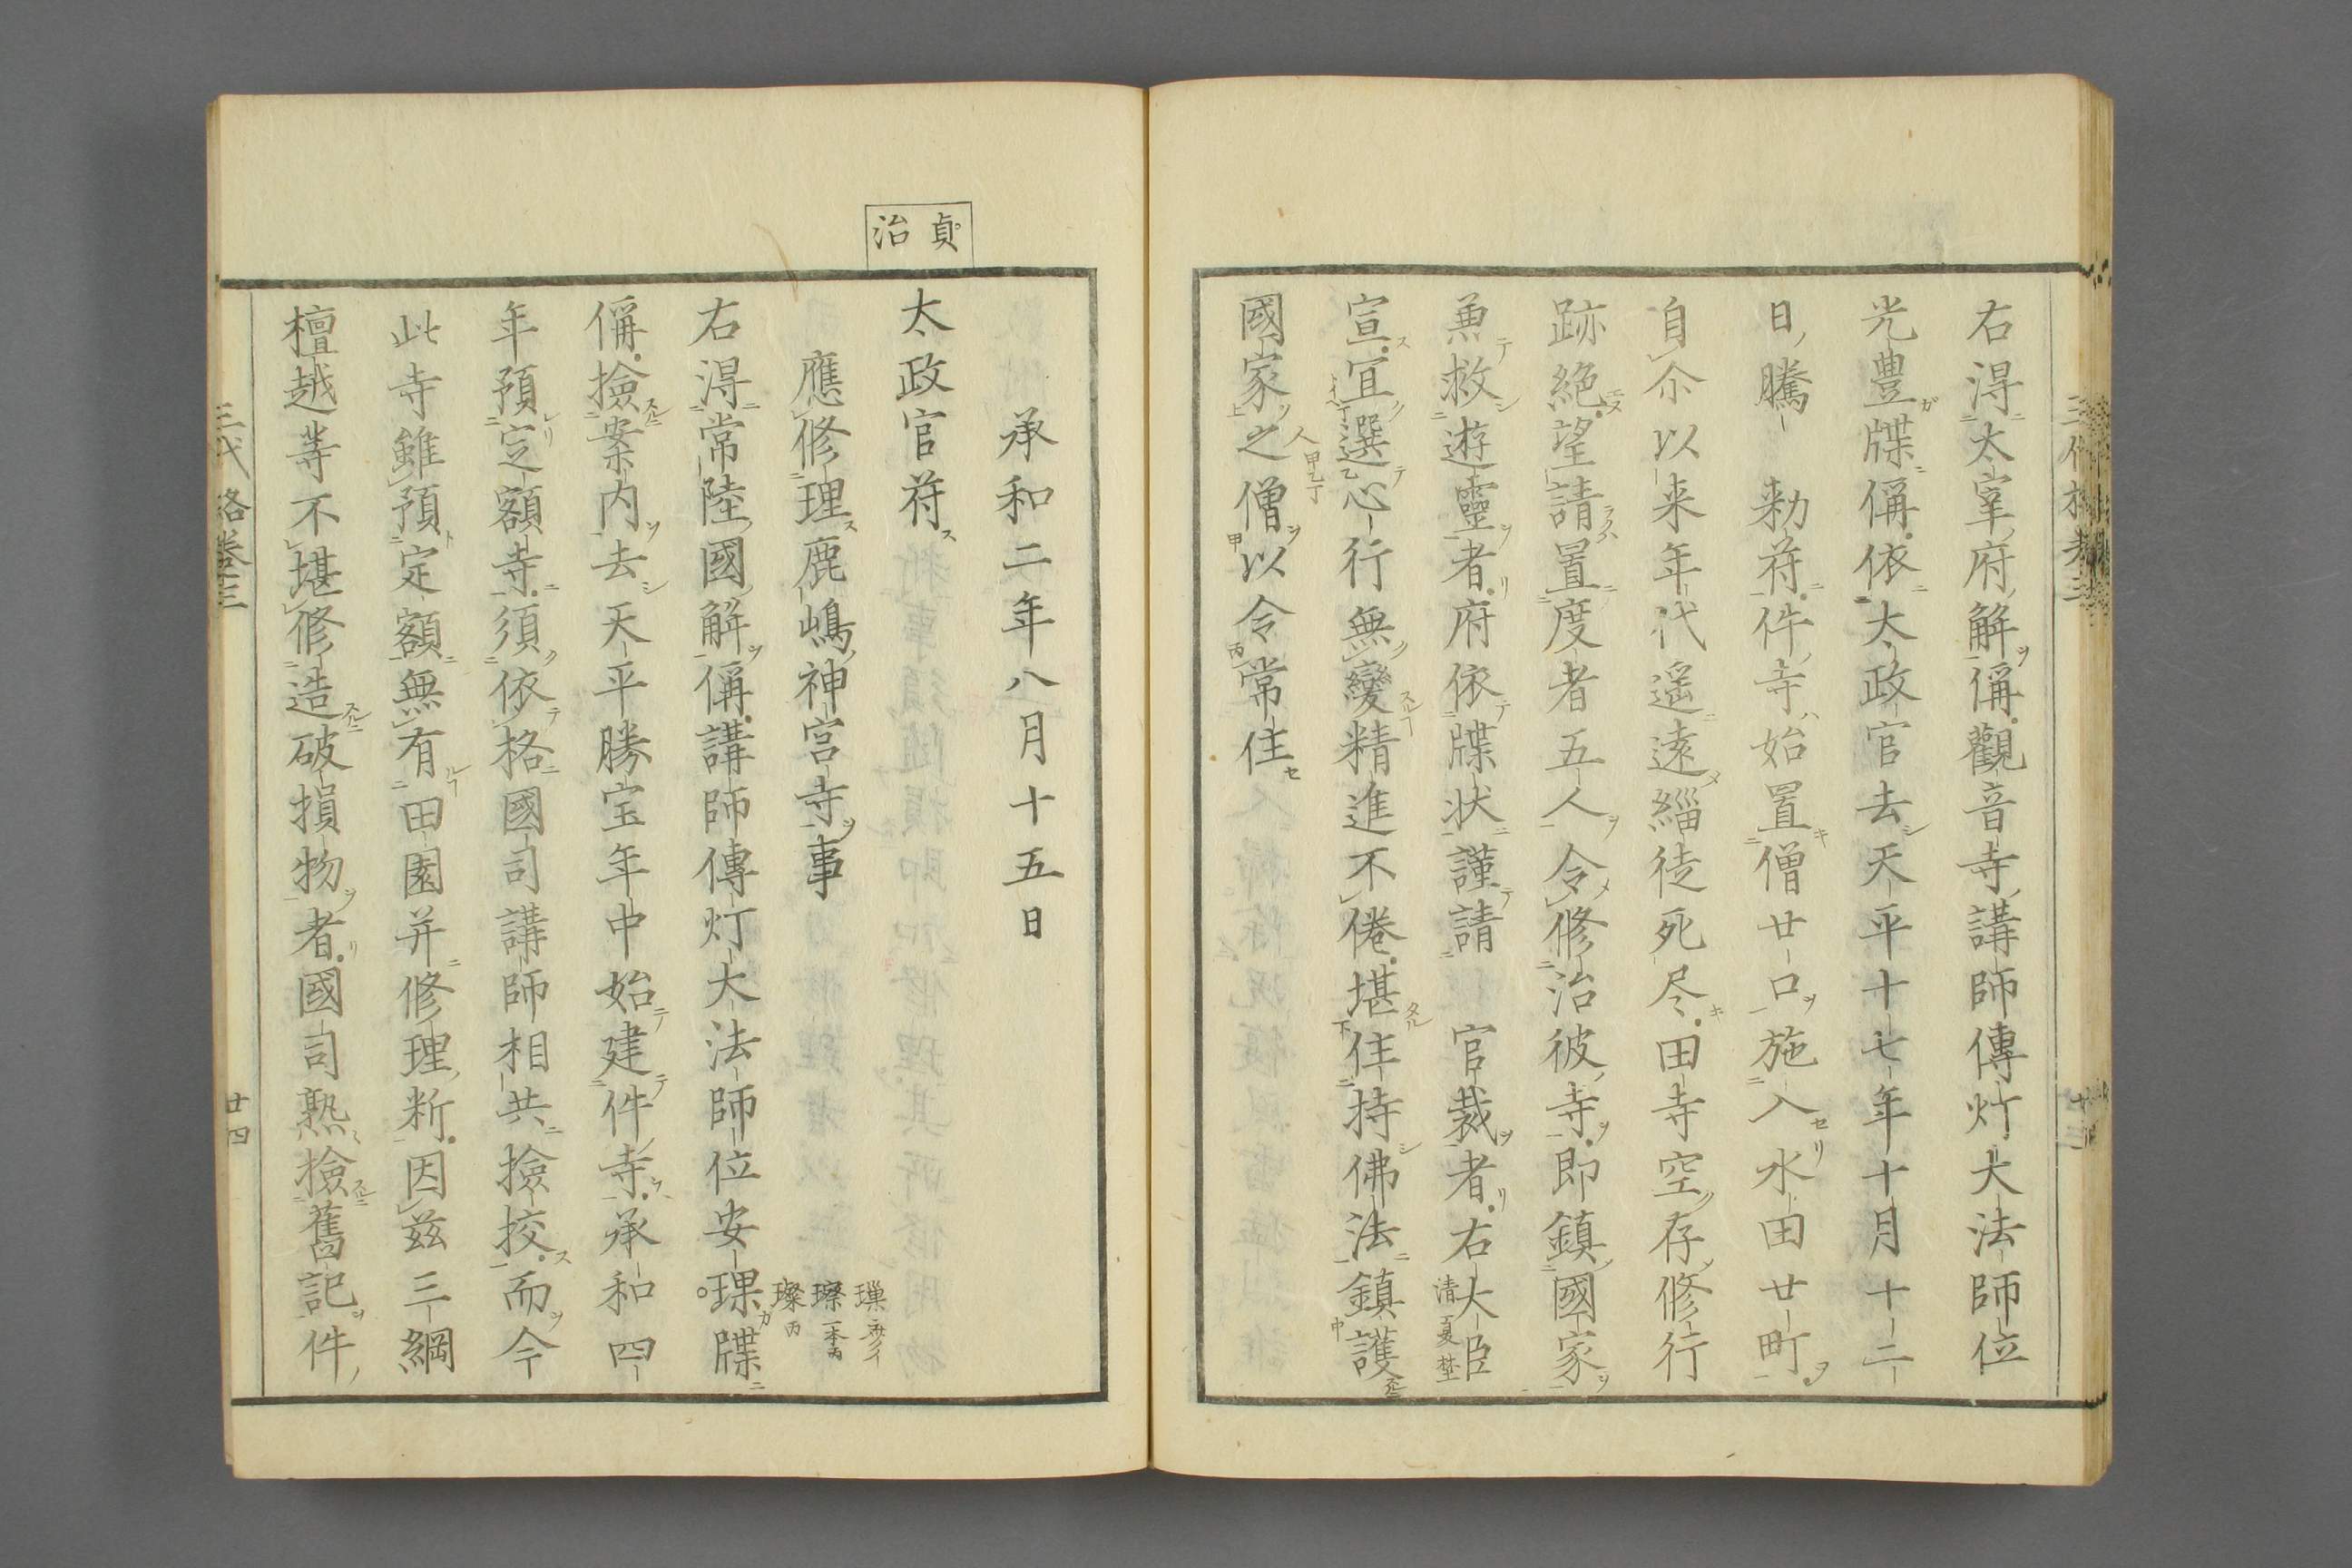 右得太宰府解偁觀音寺講師傳灯大法師位
光豊牒偁依太政官去天平十七年十月十二
日騰 勅符件寺始置僧廿口施入水田廿町
自尒以来年代遥遠緇徒死尽田寺空存修行
跡絶望請置度者五人令修治彼寺即鎮國家
兼救遊靈者府依牒状謹請 官裁者右大臣
清夏埜
宣宜選心行無變精進不倦堪住持佛法鎮護
國家之僧以令常住
人甲乙丁
承和二年八月十五日
貞治
太政官符
應修理鹿嶋神宮寺事
右得常陸國解偁講師傳灯大法師位安璖牒
偁撿案内去天平勝宝年中始建件寺承和四
年預定額寺須依格國司講師相共撿挍而今
此寺雖預定額無有田園并修理料因兹三綱
檀越等不堪修造破損物者國司熟撿舊記件
三代格巻三
廿四